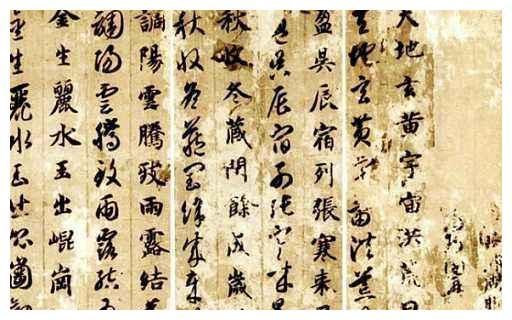 天地玄黄宇宙洪荒日
天地玄黄宇宙洪荒
盈昃辰宿列張寒来
盈昃辰宿列張寒来
秋收冬藏閏餘成歲
秋收冬藏閏餘成歲
調陽雲騰致雨露結
調陽雲騰致雨露結
金生麗水玉出崐崗
金生麗水玉出崐崗